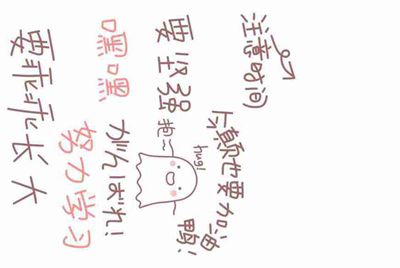 要乖乖长大
嘿嘿
努力学习
がんばれ！
要坚强
抱~
hug!
注意时间
颠也要加油
鸭！